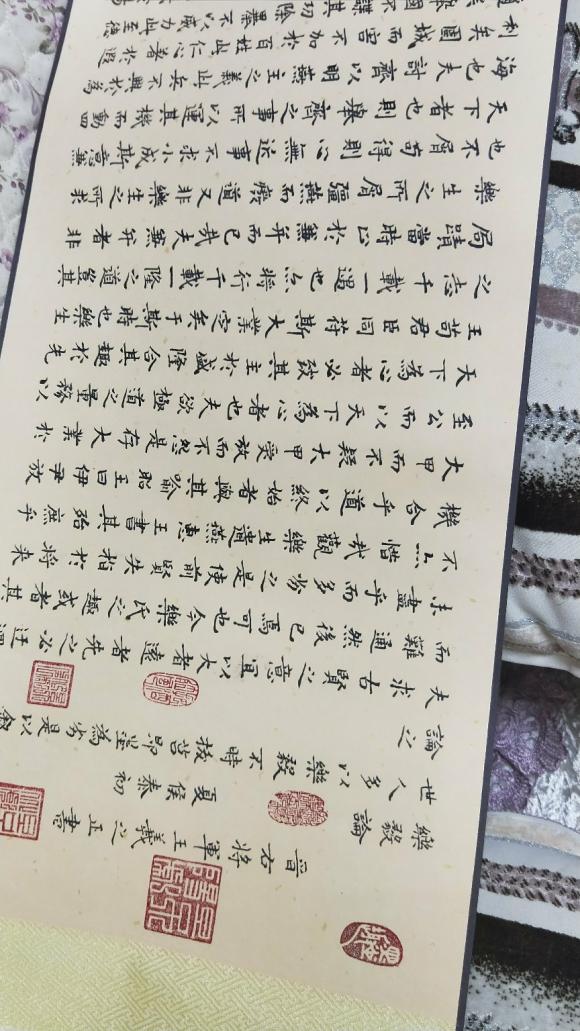 晉右將軍王羲之正書
樂毅論
夏侯泰初
世人多以樂毅不時拔莒即墨為劣是以叙
論之
夫求古賢之意宜以大者遠者先之必迂迴
而難通然後已焉可也今樂氏之趣或者其
未盡乎而多劣之是使前賢失指於將來
不亦惜哉觀樂生遺燕惠王書其殆庶乎
機合乎道以終始者與其喻昭王曰伊尹放
大甲而不疑大甲受放而不怨是存大業於
至公而以天下為心者也夫欲極道之量務以
天下為心者必致其主於盛隆合其趣於先
王苟君臣同符斯大業定矣于斯時也樂生
之志千載一遇也亦將行千載一隆之道豈其
局蹟當時止於兼并而已哉夫兼并者非
樂生之所屑彊燕而廢道又非樂生之所求
也不屑苟得則心無近事不求小成斯意兼
天下者也則舉齊之事所以運其機而動四
海也夫討齊以明燕主之義此兵不興於為
利矣圍城而害不加於百姓此仁心著於遐
其功除暴不以威力此至德